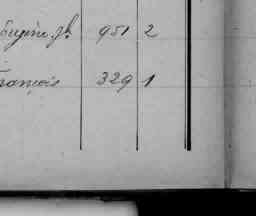 Eugène Jh 951 2
François 329 1